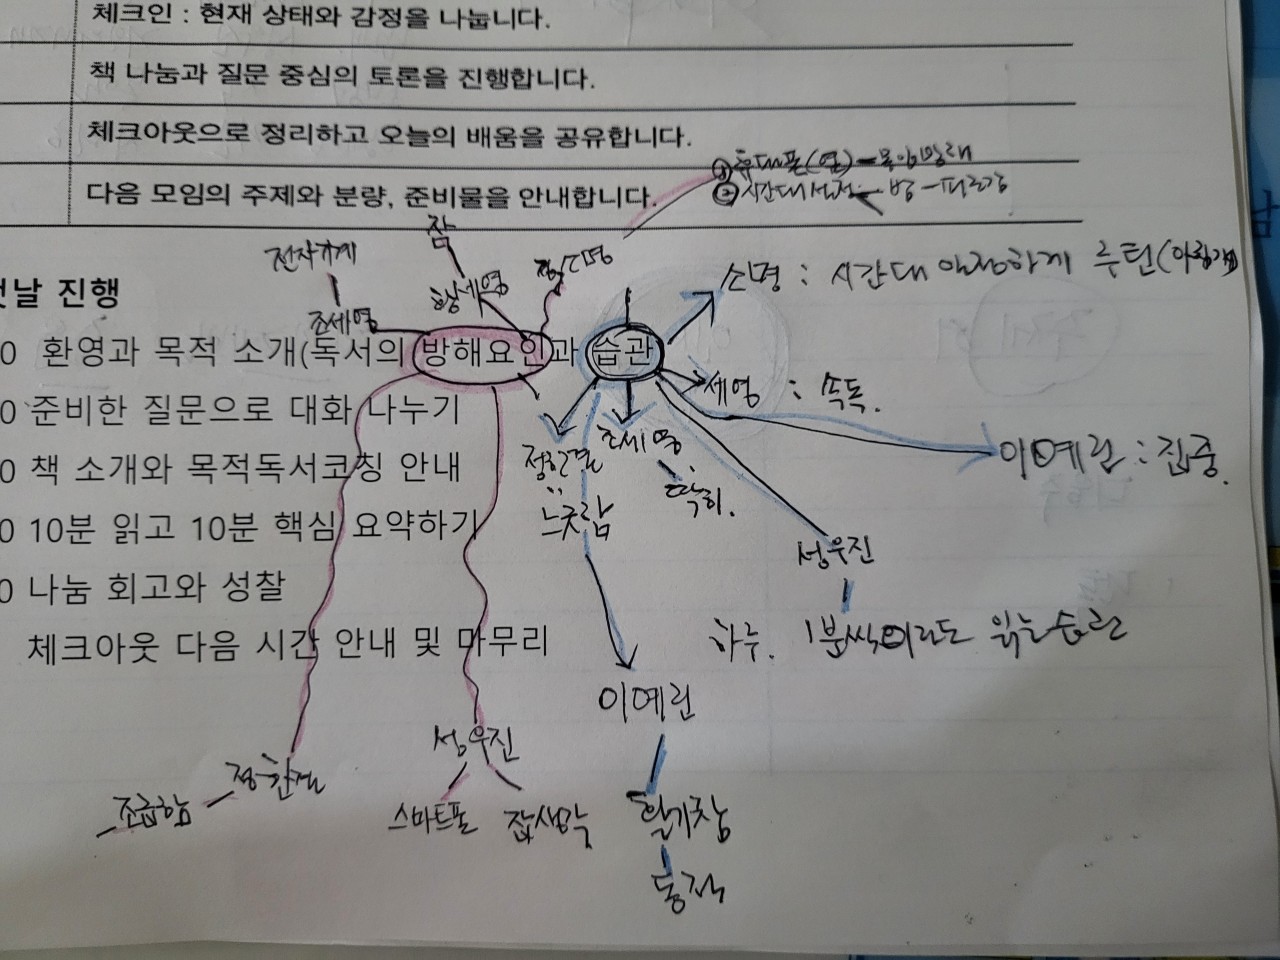 체크인 : 현재 상태와 감정을 나눕니다.
책 나눔과 질문 중심의 토론을 진행합니다.
체크아웃으로 정리하고 오늘의 배움을 공유합니다.
다음 모임의 주제와 분량, 준비물을 안내합니다.
① 휴대폰(옆)
② 시간대 밤 - 피곤함
잠
전자기계
황세영
조세영
소명 : 시간대 안정하게 루틴(아침
날 진행
0 환영과 목적 소개(독서의 방해요인과 습관
세영 : 속독.
0 준비한 질문으로 대화 나누기
정한결
조세영
이예린 : 집중.
0 책 소개와 목적독서코칭 안내
느긋함
0 10분 읽고 10분 핵심 요약하기
성우진
0 나눔 회고와 성찰
하루. 1분씩이라도 읽는습관
체크아웃 다음 시간 안내 및 마무리
이예린
성우진
정한결
조급함
스마트폰
잡생각
필기장
동작